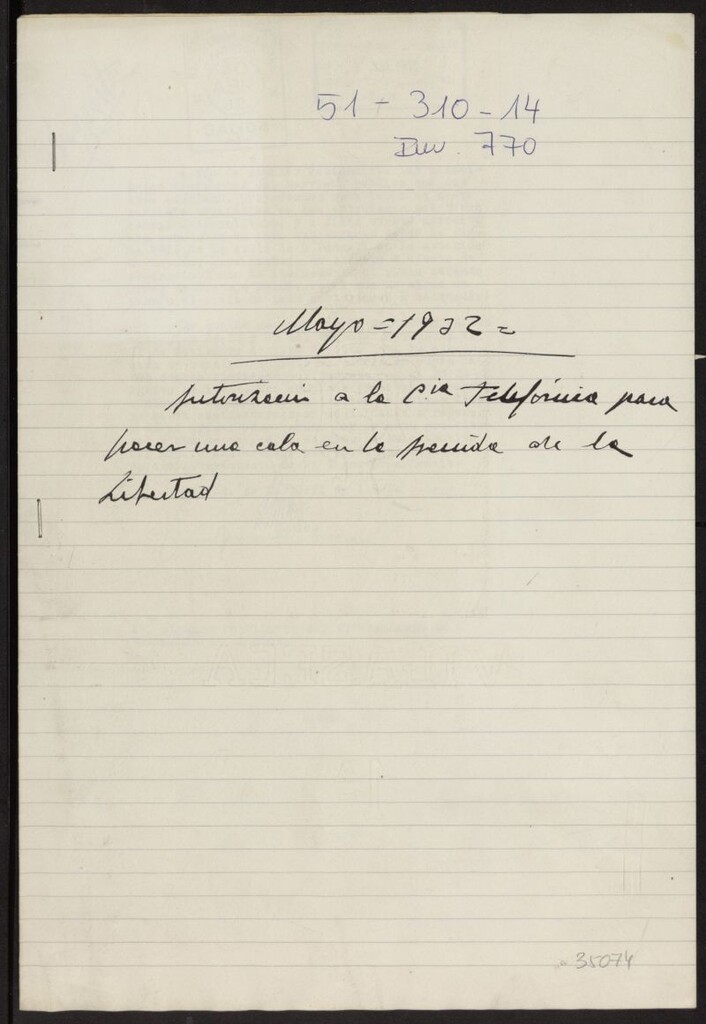 51 - 310 - 14
770
Mayo = 1932 =
Autorización a la Cia Telefónica para
hacer una cala en la Avenida de la
Libertad
35074